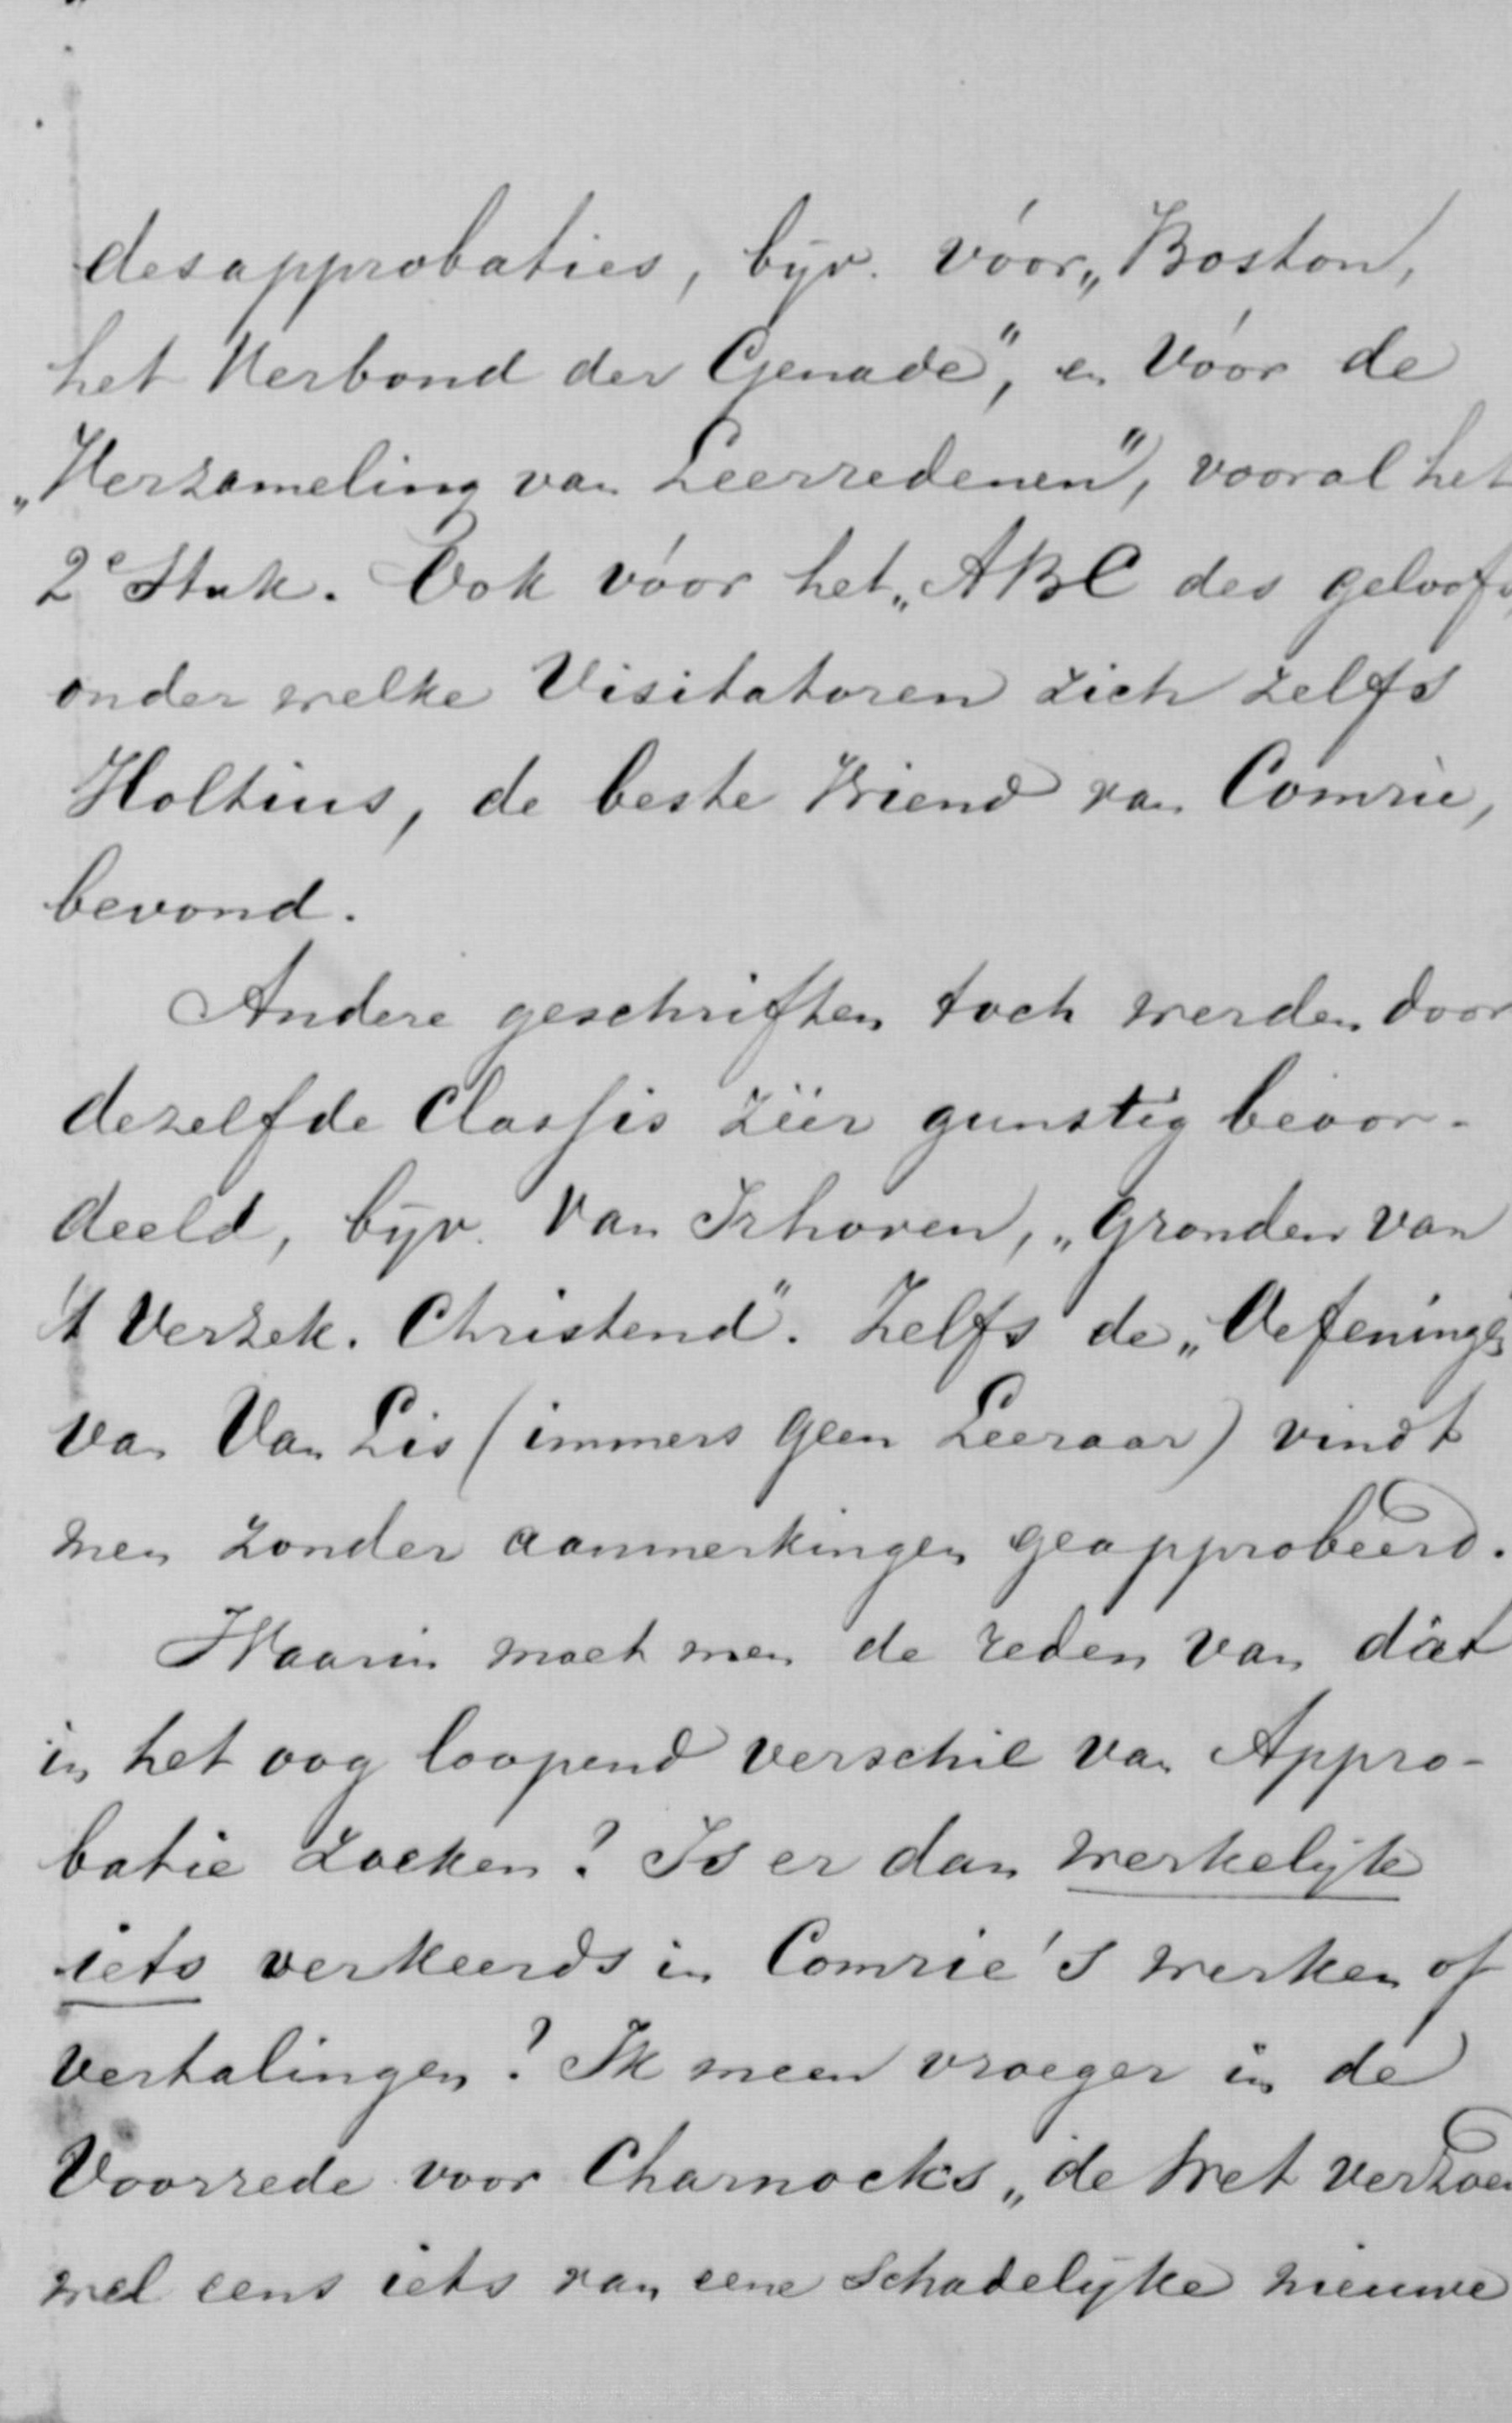 desapprobaties, bijv. vóór „Boston,
het Verbond der Genade", en vóór de
„Verzameling van Leerredenen", vooral het
2e Stuk. Ook vóór het „ABC des geloofs
onder welke Visitatoren zich zelfs
Holtius, de beste Vriend van Comrie,
bevond.
Andere geschriften toch werden door
dezelfde Classis zéér gunstig beoor-
deeld, bijv. Van Irhoven, „Gronden van
't Verzek. Christend". Zelfs de „Oefeninge
van Van Lis (immers geen Leeraar) vindt
men zonder aanmerkingen geapprobeerd.
Waarin moet men de reden van dat
in het oog loopend verschil van Appro-
batie zoeken? Is er dan werkelijk
iets verkeerds in Comrie's werken of
vertalingen? Ik meen vroeger in de
Voorrede voor Charnock's „de Met verzoen
wel eens iets van eene schadelijke nieuwe